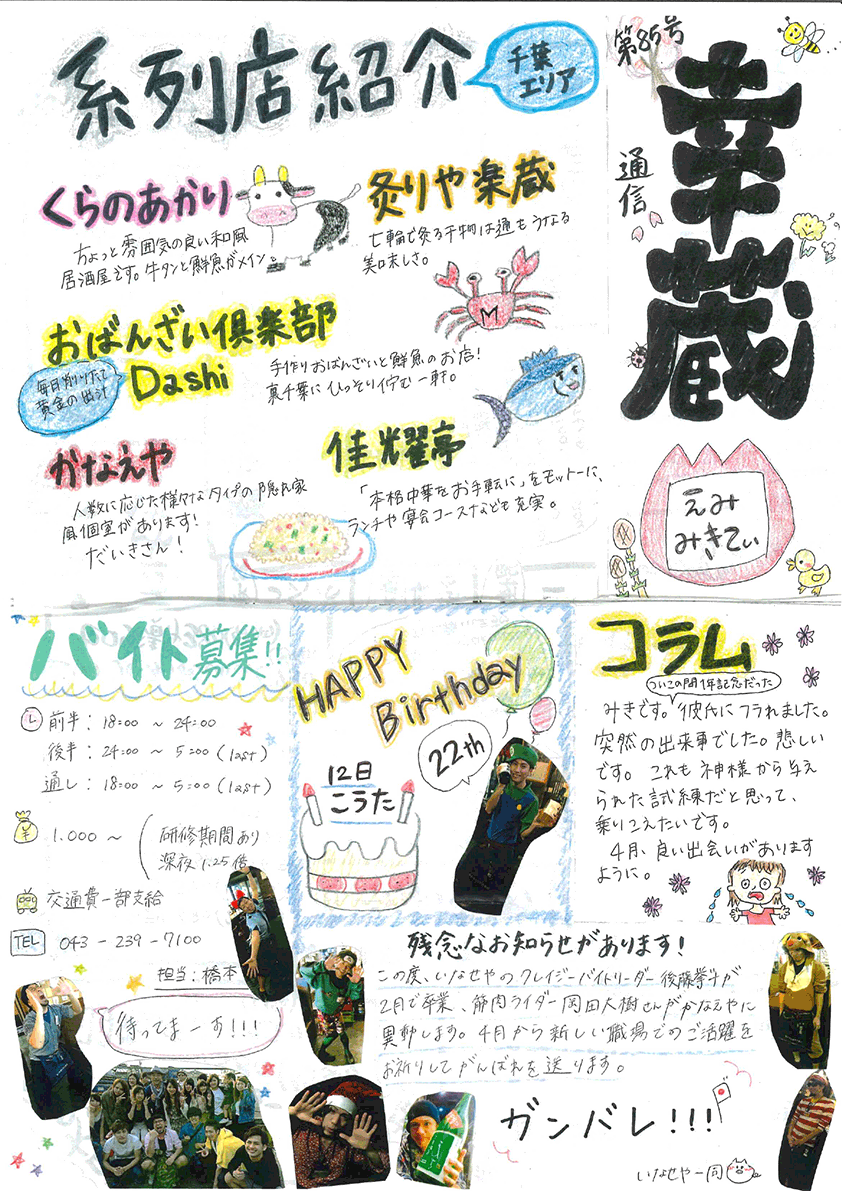 第85号
幸蔵
通信
えみ
みきてぃ
系列店紹介
千葉
エリア
くらのあかり
ちょっと雰囲気の良い和風
居酒屋です。牛タンと鮮魚がメイン。
炙りや楽蔵
七輪で炙る干物は通もうなる
美味しさ。
M
おばんざい倶楽部
Dashi
毎日削りたて
黄金の出汁
手作りおばんざいと鮮魚のお店!
裏千葉にひっそり佇む一軒。
かなえや
人数に応じた様々なタイプの隠れ家
風個室があります!
だいきさん!
佳耀亭
「本格中華をお手軽に」をモットーに、
ランチや宴会コースなども充実。
バイト募集!!
前半:18:00 ~ 24:00
後半:24:00 ~ 5:00 (last)
通し:18:00 ~ 5:00 (last)
1.000 ~
研修期間あり
深夜 1.25倍
交通費一部支給
TEL 043-239-7100
担当:橋本
待ってまーす!!!
HAPPY
Birthday
22th
12日
こうた
コラム
ついこの間1年記念だった
みきです。彼氏にフラれました。
突然の出来事でした。悲しい
です。これも神様から与え
られた試練だと思って、
乗りこえたいです。
4月、良い出会いがあります
ように。
残念なお知らせがあります!
この度、いなせやのクレイジーバイトリーダー後藤挙子が
2月で卒業、筋肉ライダー岡田大樹さんがかなえやに
異動します。4月から新しい職場でのご活躍を
お祈りしてがんばれを送ります。
ガンバレ!!!
いなせや一同